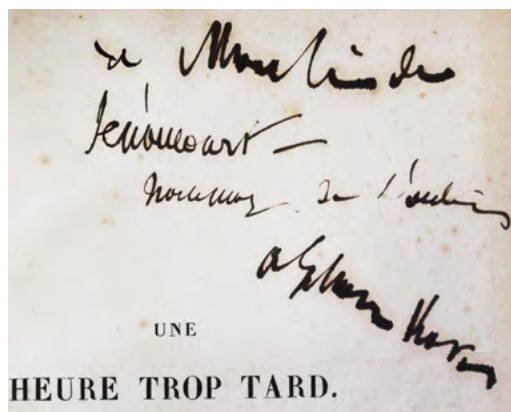 a Monsieur de
hommage de l'auteur
alphonse Karr
UNE
HEURE TROP TARD.